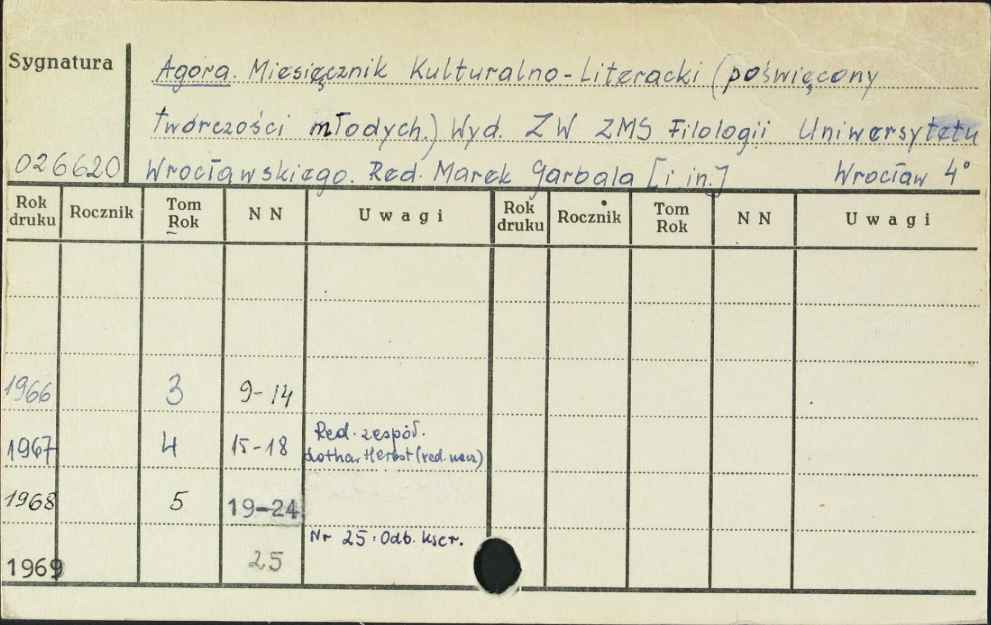 Sygnatura
Agora. Miesięcznik Kulturalno-Literacki (poświęcony
twórczości młodych.) Wyd. ZW ZMS Filologii Uniwersytetu
026620 Wrocławskiego. Red. Marek Garbala [i in.] Wrocław 4°
Rok druku Rocznik Tom Rok N N Uwagi Rok druku Rocznik Tom Rok N N Uwagi
1966 3 9-14
1967 4 15-18 Red. zespół.
Lothar Herbst (red. nacz)
1968 5 19-24
Nr 25. Odb. kser.
1969 25